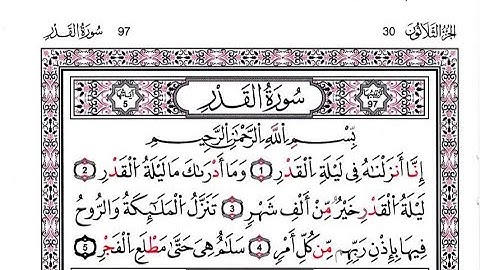 الجزء الثلاثون 30 97 سورة القدر
ترتيبها 97 سُورَةُ الْقَدْرِ آياتها 5
بِسْمِ اللَّهِ الرَّحْمَٰنِ الرَّحِيمِ
إِنَّا أَنزَلْنَاهُ فِي لَيْلَةِ الْقَدْرِ 1 وَمَا أَدْرَاكَ مَا لَيْلَةُ الْقَدْرِ 2
لَيْلَةُ الْقَدْرِ خَيْرٌ مِّنْ أَلْفِ شَهْرٍ 3 تَنَزَّلُ الْمَلَائِكَةُ وَالرُّوحُ
فِيهَا بِإِذْنِ رَبِّهِم مِّن كُلِّ أَمْرٍ 4 سَلَامٌ هِيَ حَتَّىٰ مَطْلَعِ الْفَجْرِ 5